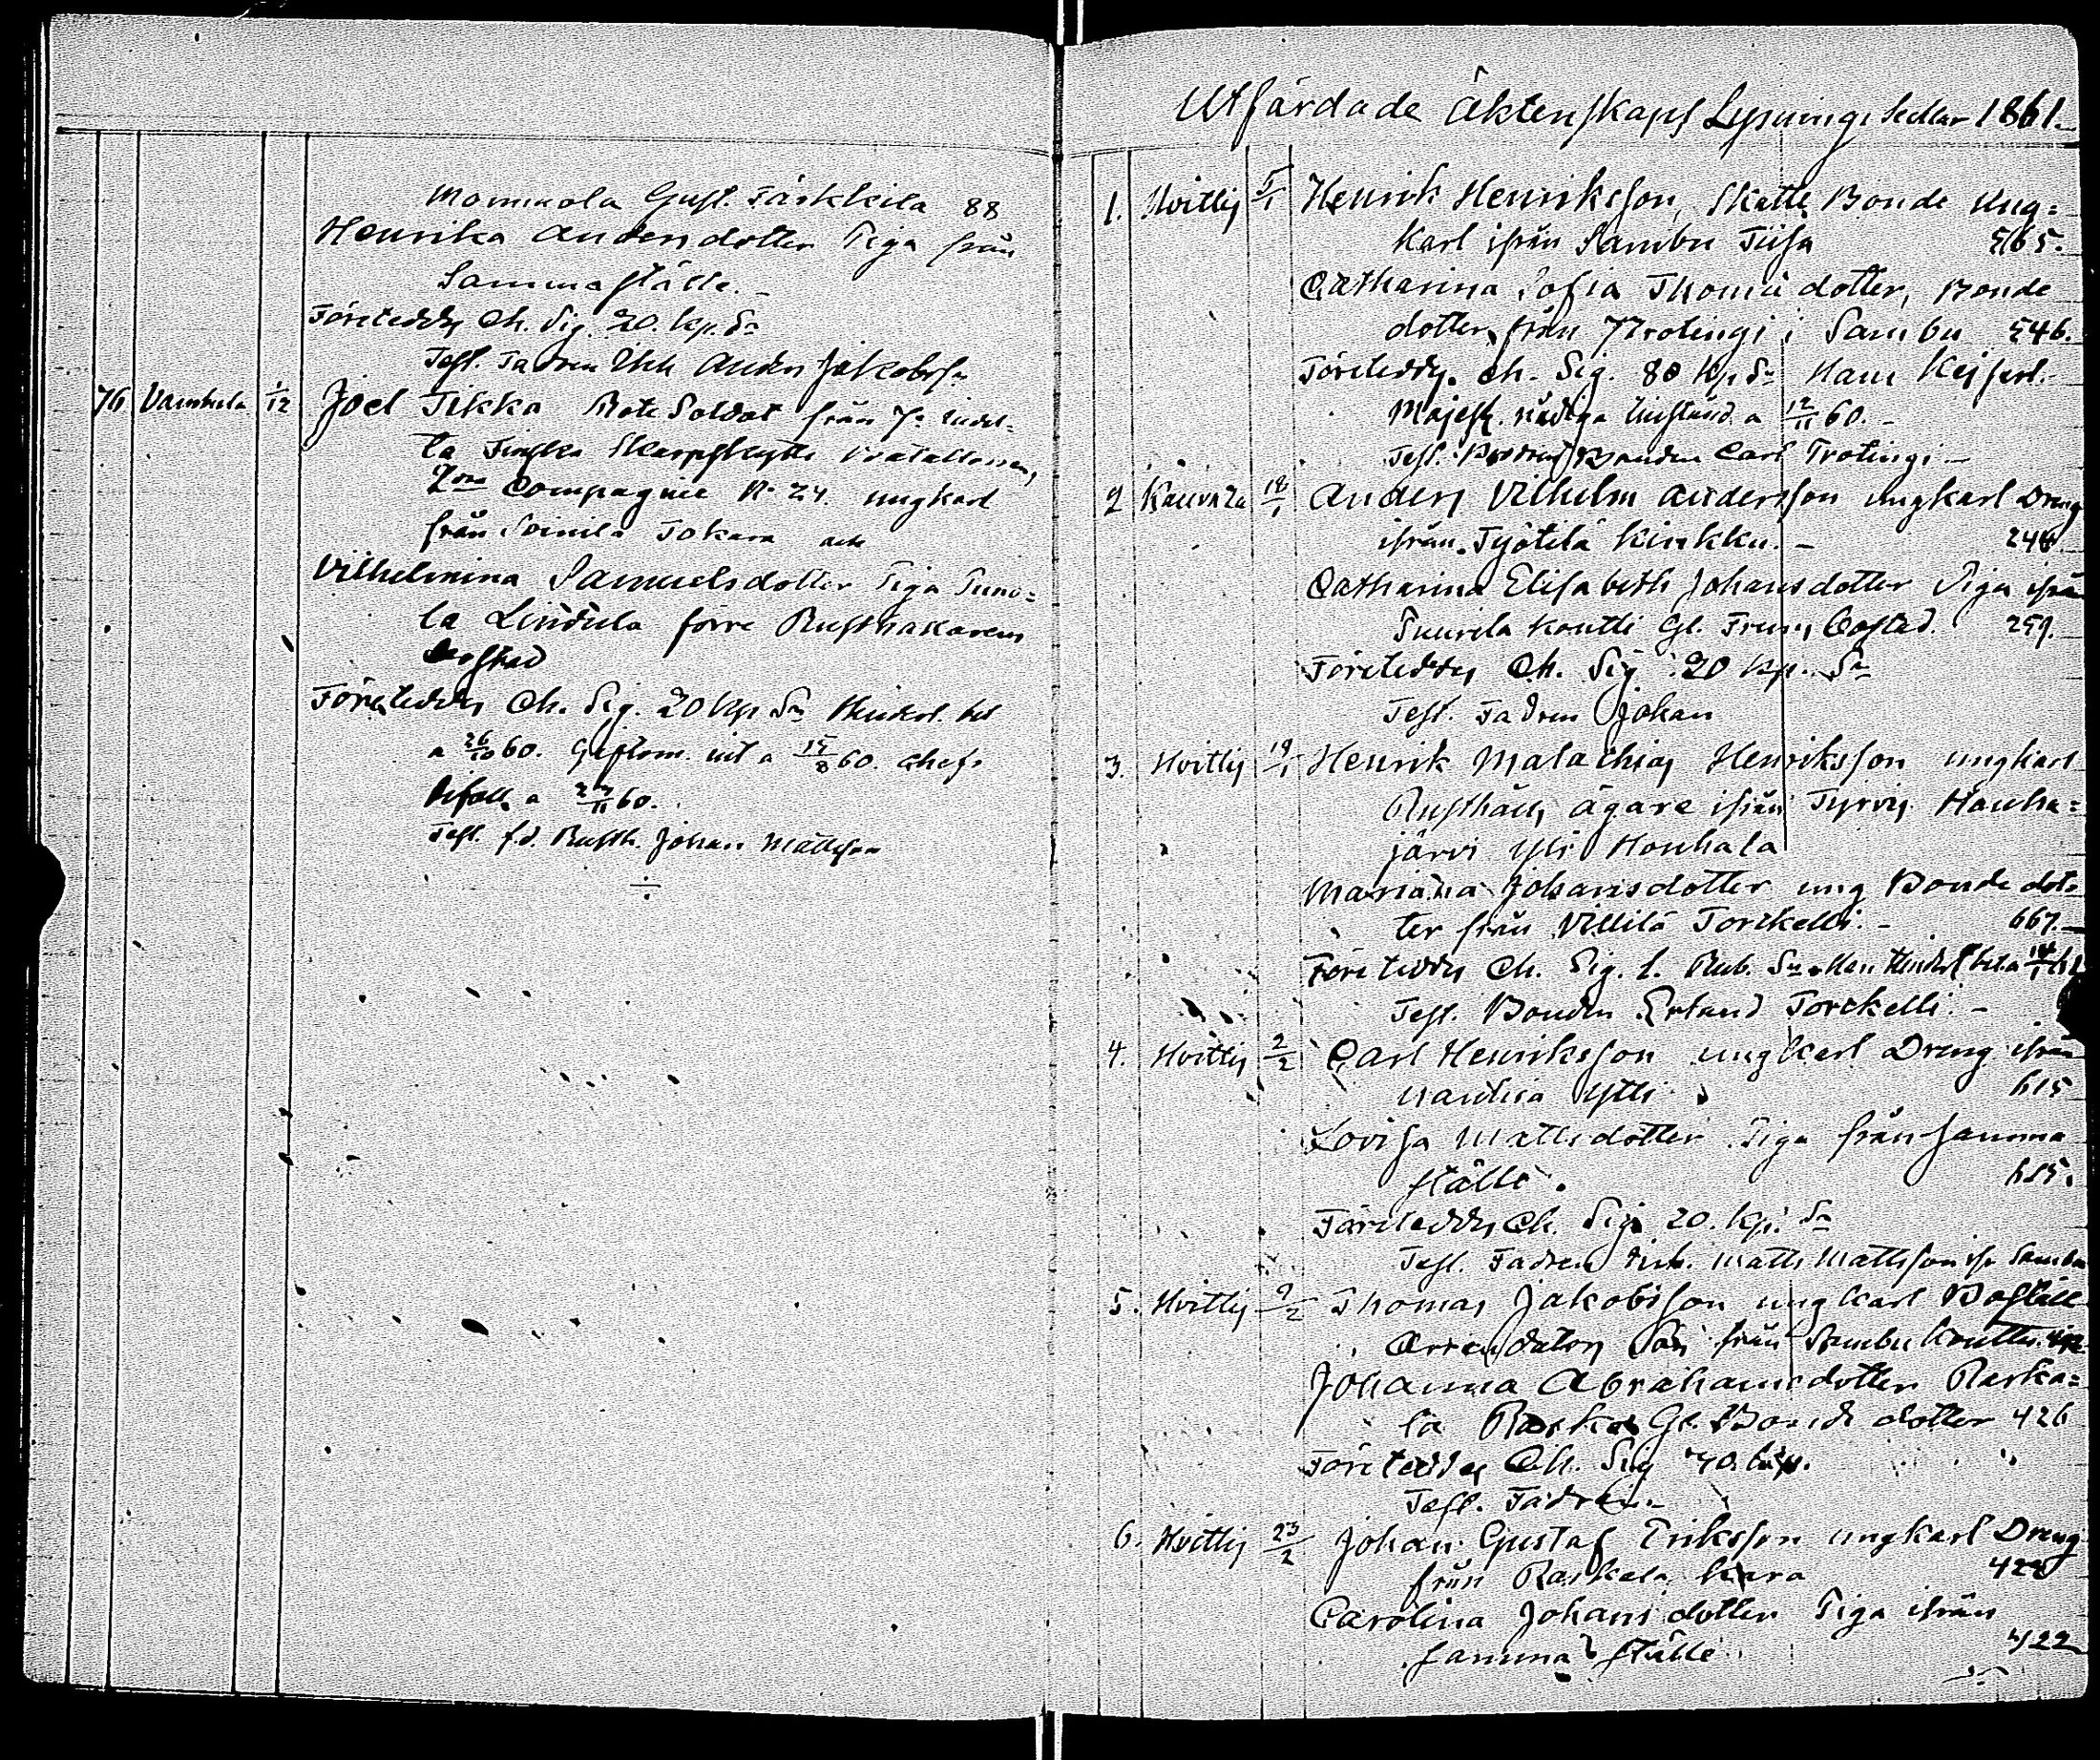 Mommola Gust. Färkkilä 88
Henrika Andersdotter Piga från
Samma ställe.
Företeddes Ch. Sig. 20. kp. Sr
Test. Fadren Anders Jakobss.
76 Vamhula 1/12 Joel Tikka Rote Soldat från 7de indel=
ta Finska Skarpskytte Bataillonen,
2dra Compagnie N. 24. ungkarl
från Soinila Tokara och
Vilhelmina Samuelsdotter Piga Suno=
la Lindula förre Rusthållarens
Företeddes Ch. Sig. 20 kp Sr Hinderl. bet
a 26/10 60. Giftom. int a 15/8 60. Chefs
bifall a 60.
Test. f.d. Rusth. Johan Mattsson
Utfärdade Äktenskaps Lysnings Sedlar 1861.
1. Hvittis 5/1 Henrik Henriksson, Skatte Bonde Ung=
karl ifrån Sambu Tiisa 565.
Catharina Sofia Thomædotter, Bonde
dotter från Trotingi i Sambu 546.
Företeddes Ch. Sig. 80 kp Sr Hans Kejserl.
Majest. nådiga tillstånd a 12/11 60.
Test. Brodren Bonden Carl Trotingi
2 Kauvatsa 18/1 Anders Vilhelm Andersson ungkarl Dreng
ifrån Työtilä Kinkku. 246
Catharina Elisabeth Johansdotter Piga ifrån
Suurila Koutti Gl. 259.
Företeddes Ch. Sig 20 kp. Sr
Test. Fadren Johan
3. Hvittis 19/1 Henrik Malachias Henriksson ungkarl
Rusthålls ägare ifrån Tyrvis Houha=
järvi Yli Houhala
Mariana Johansdotter ung Bonde dot=
ter från Villilä Torckelli. 667.
Företeddes Ch. Sig. 1. Rub. Sr Hinderl. bet. a
Test. Bonden Erland Torckelli.
4. Hvittis 2/2 Carl Henriksson ungkarl Dreng ifrån
Yttli 615
Lovisa Mattsdotter Piga från samma
ställe. 615.
Företeddes Ch. Sig. 20. kp. Sr
Test. Fadren Matts Mattsson ifr Sambu
5. Hvittis 9/2 Thomas Jakobsson ungkarl Boställs
Arrendators Son från Sambu Koutti
Johanna Abrahamsdotter Raska=
la Raska Gl. Bonde dotter 426
Företeddes Ch. Sig 40 kp.
Test. Fadren.
6. Hvittis 23/2 Johan Gustaf Eriksson ungkarl Dreng
från Raskala Kara 422
Carolina Johansdotter Piga ifrån
samma ställe 422